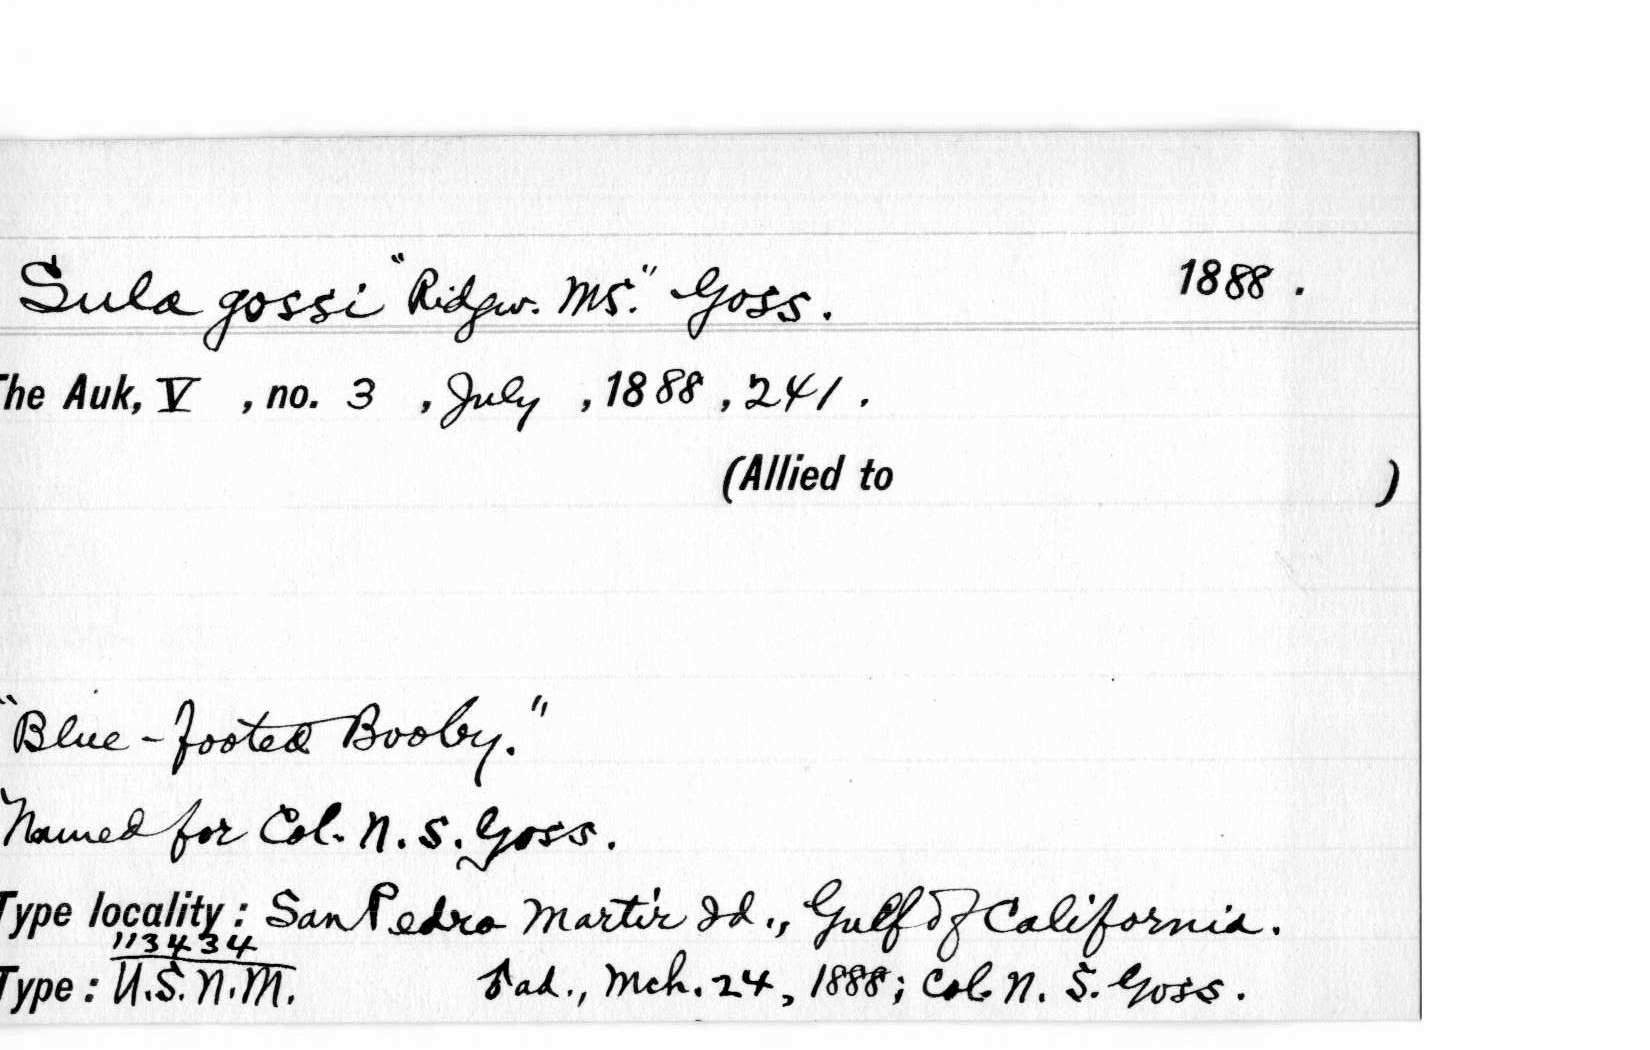 Sula gossi "Ridgw. MS." Goss. 1888.
The Auk, V, no. 3, July, 1888, 241.
(Allied to )
"Blue-footed Booby."
Named for Col. N. S. Goss.
Type locality: San Pedro Martir Id., Gulf of California.
113434
Type: U.S.N.M. ♂ ad., Mch. 24, 1888; Col. N. S. Goss.